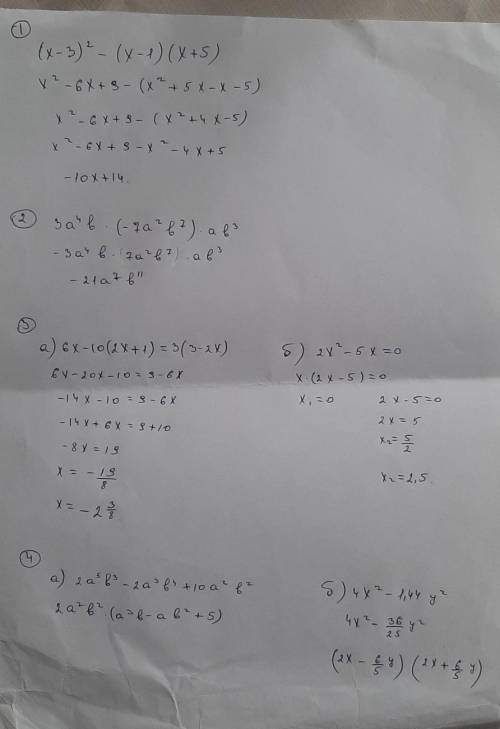 ①
(x-3)² - (x-1)(x+5)
x² - 6x + 9 - (x² + 5x - x - 5)
x² - 6x + 9 - (x² + 4x - 5)
x² - 6x + 9 - x² - 4x + 5
-10x + 14.
②
3a⁴b · (-7a²b⁷) · ab³
-3a⁴b · (7a²b⁷) · ab³
-21a⁷b¹¹
3
а) 6x - 10(2x+1) = 3(3-2x)
6x - 20x - 10 = 9 - 6x
-14x - 10 = 9 - 6x
-14x + 6x = 9 + 10
-8x = 19
x = -19/8
x = -2 3/8
б) 2x² - 5x = 0
x · (2x - 5) = 0
x₁ = 0 2x - 5 = 0
2x = 5
x₂ = 5/2
x₂ = 2,5.
④
а) 2a⁵b³ - 2a³b⁴ + 10a²b²
2a²b² · (a³b - ab² + 5)
б) 4x² - 1,44y²
4x² - 36/25 y²
(2x - 6/5 y) (2x + 6/5 y)